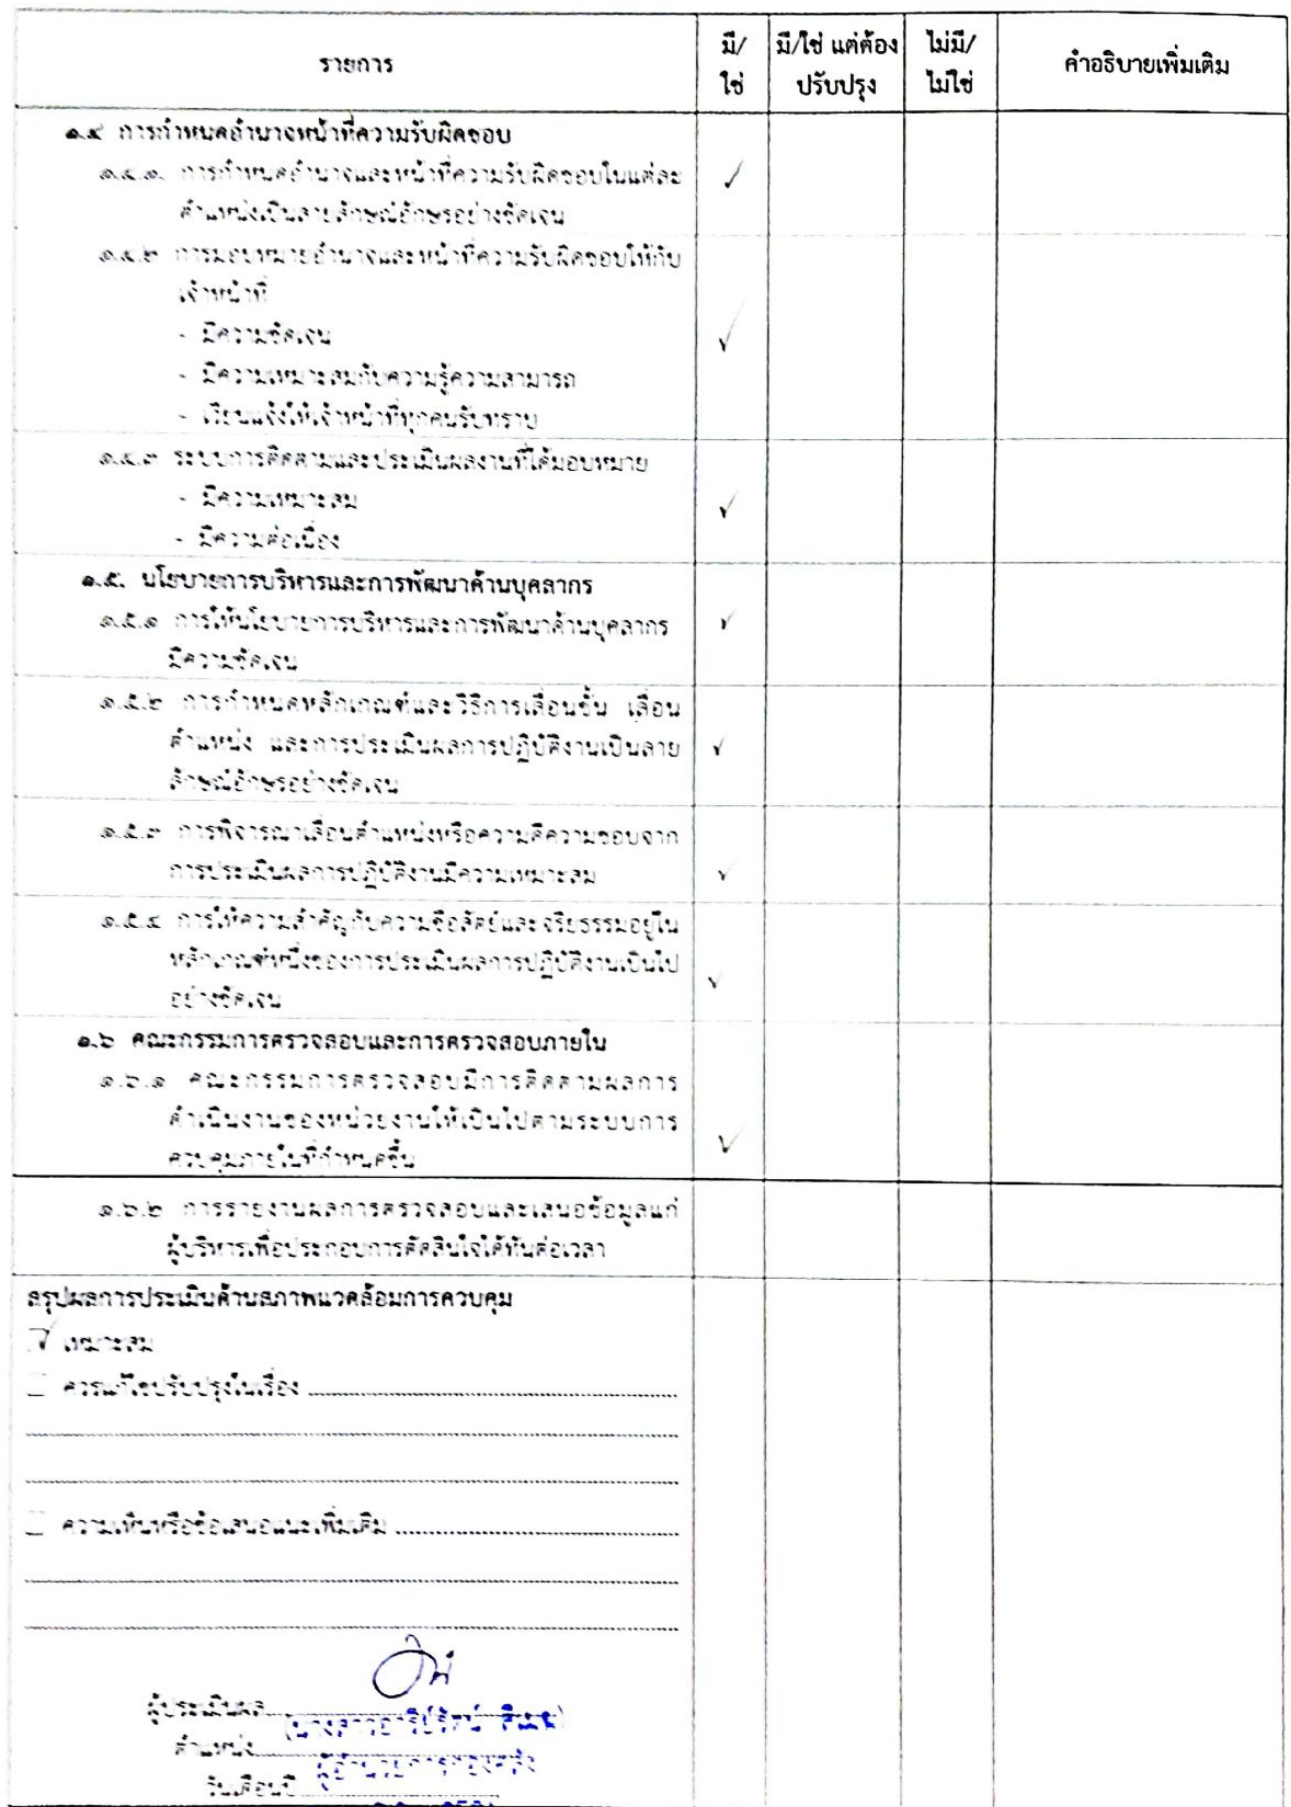 รายการ
มี/
ใช่
มี/ใช่ แต่ต้อง
ปรับปรุง
ไม่มี/
ไม่ใช่
คำอธิบายเพิ่มเติม
๑.๔ การกำหนดอำนาจหน้าที่ความรับผิดชอบ
๑.๔.๑. การกำหนดอำนาจและหน้าที่ความรับผิดชอบในแต่ละ
ตำแหน่งเป็นลายลักษณ์อักษรอย่างชัดเจน
✓
๑.๔.๒ การมอบหมายอำนาจและหน้าที่ความรับผิดชอบให้กับ
เจ้าหน้าที่
- มีความชัดเจน
✓
- มีความเหมาะสมกับความรู้ความสามารถ
- เวียนแจ้งให้เจ้าหน้าที่ทุกคนรับทราบ
๑.๔.๓ ระบบการติดตามและประเมินผลงานที่ได้มอบหมาย
- มีความเหมาะสม
✓
- มีความต่อเนื่อง
๑.๕. นโยบายการบริหารและการพัฒนาด้านบุคลากร
๑.๕.๑ การให้นโยบายการบริหารและการพัฒนาด้านบุคลากร
✓
มีความชัดเจน
๑.๕.๒ การกำหนดหลักเกณฑ์และวิธีการเลื่อนขั้น เลื่อน
ตำแหน่ง และการประเมินผลการปฏิบัติงานเป็นลาย
✓
ลักษณ์อักษรอย่างชัดเจน
๑.๕.๓ การพิจารณาเลื่อนตำแหน่งหรือความดีความชอบจาก
การประเมินผลการปฏิบัติงานมีความเหมาะสม
✓
๑.๕.๔ การให้ความสำคัญกับความซื่อสัตย์และจริยธรรมอยู่ใน
หลักเกณฑ์หนึ่งของการประเมินผลการปฏิบัติงานเป็นไป
✓
อย่างชัดเจน
๑.๖ คณะกรรมการตรวจสอบและการตรวจสอบภายใน
๑.๖.๑ คณะกรรมการตรวจสอบมีการติดตามผลการ
ดำเนินงานของหน่วยงานให้เป็นไปตามระบบการ
✓
ควบคุมภายในที่กำหนดขึ้น
๑.๖.๒ การรายงานผลการตรวจสอบและเสนอข้อมูลแก่
ผู้บริหารเพื่อประกอบการตัดสินใจได้ทันต่อเวลา
สรุปผลการประเมินด้านสภาพแวดล้อมการควบคุม
✓ เหมาะสม
ควรแก้ไขปรับปรุงในเรื่อง
ความเห็นหรือข้อเสนอแนะเพิ่มเติม
ผู้ประเมินผล
(นางสาวอารีย์รัตน์
ตำแหน่ง
ผู้อำนวยการกองคลัง
วันเดือนปี